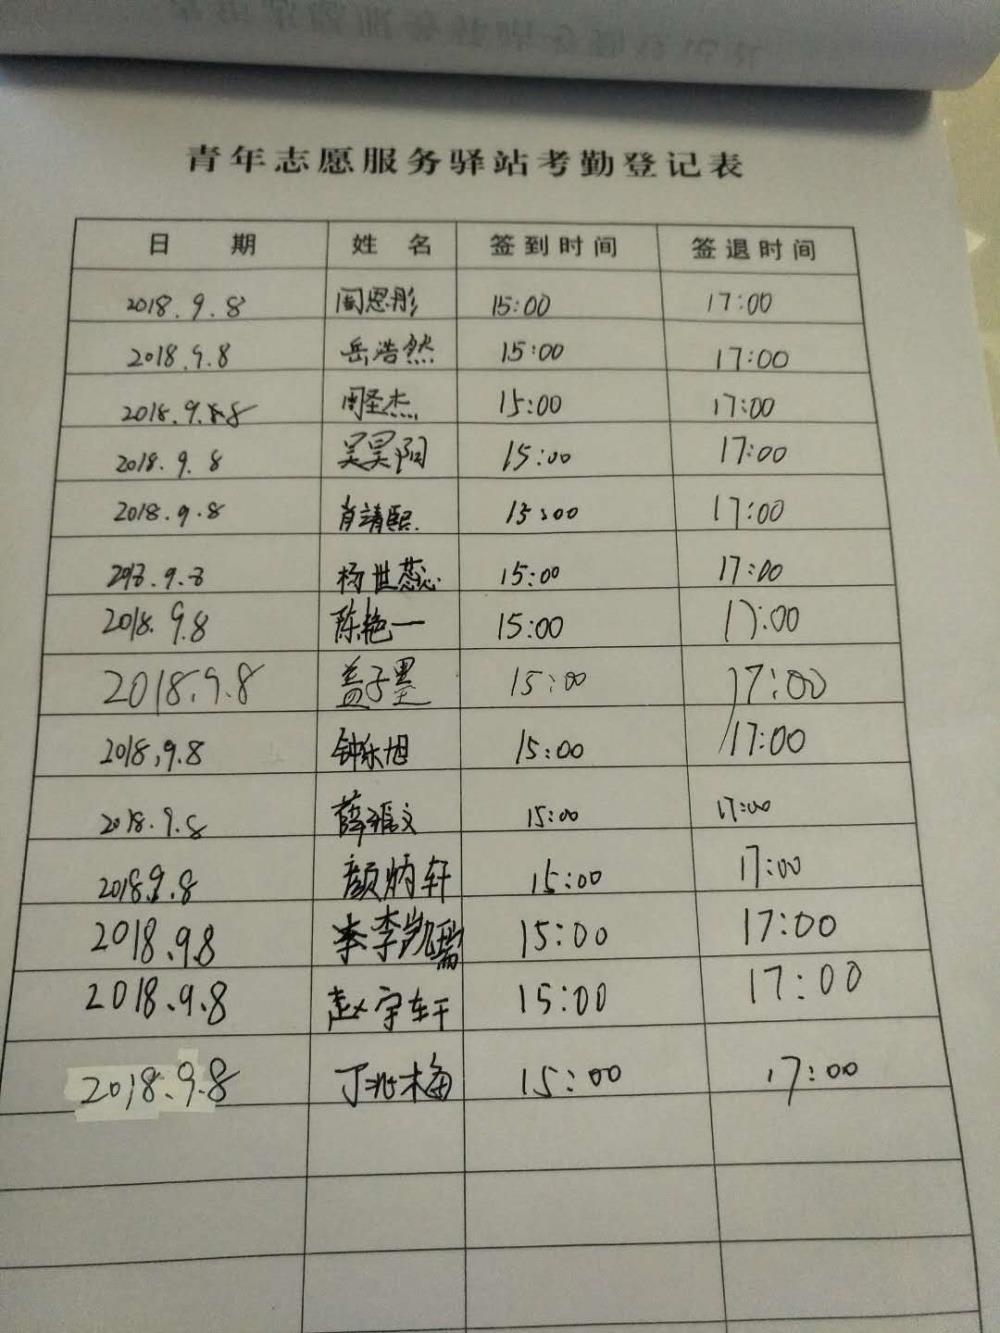 青年志愿服务驿站考勤登记表
日 期 姓 名 签到时间 签退时间
2018.9.8 15:00 17:00
2018.9.8 岳浩然 15:00 17:00
2018.9.8 周圣杰 15:00 17:00
2018.9.8 吴昊阳 15:00 17:00
2018.9.8 肖靖熙 15:00 17:00
2018.9.8 杨世蕊 15:00 17:00
2018.9.8 陈艳一 15:00 17:00
2018.9.8 盖子墨 15:00 17:00
2018.9.8 钟乐旭 15:00 17:00
2018.9.8 15:00 17:00
2018.9.8 颜炳轩 15:00 17:00
2018.9.8 李凯瑞 15:00 17:00
2018.9.8 赵宇轩 15:00 17:00
2018.9.8 丁兆梅 15:00 17:00